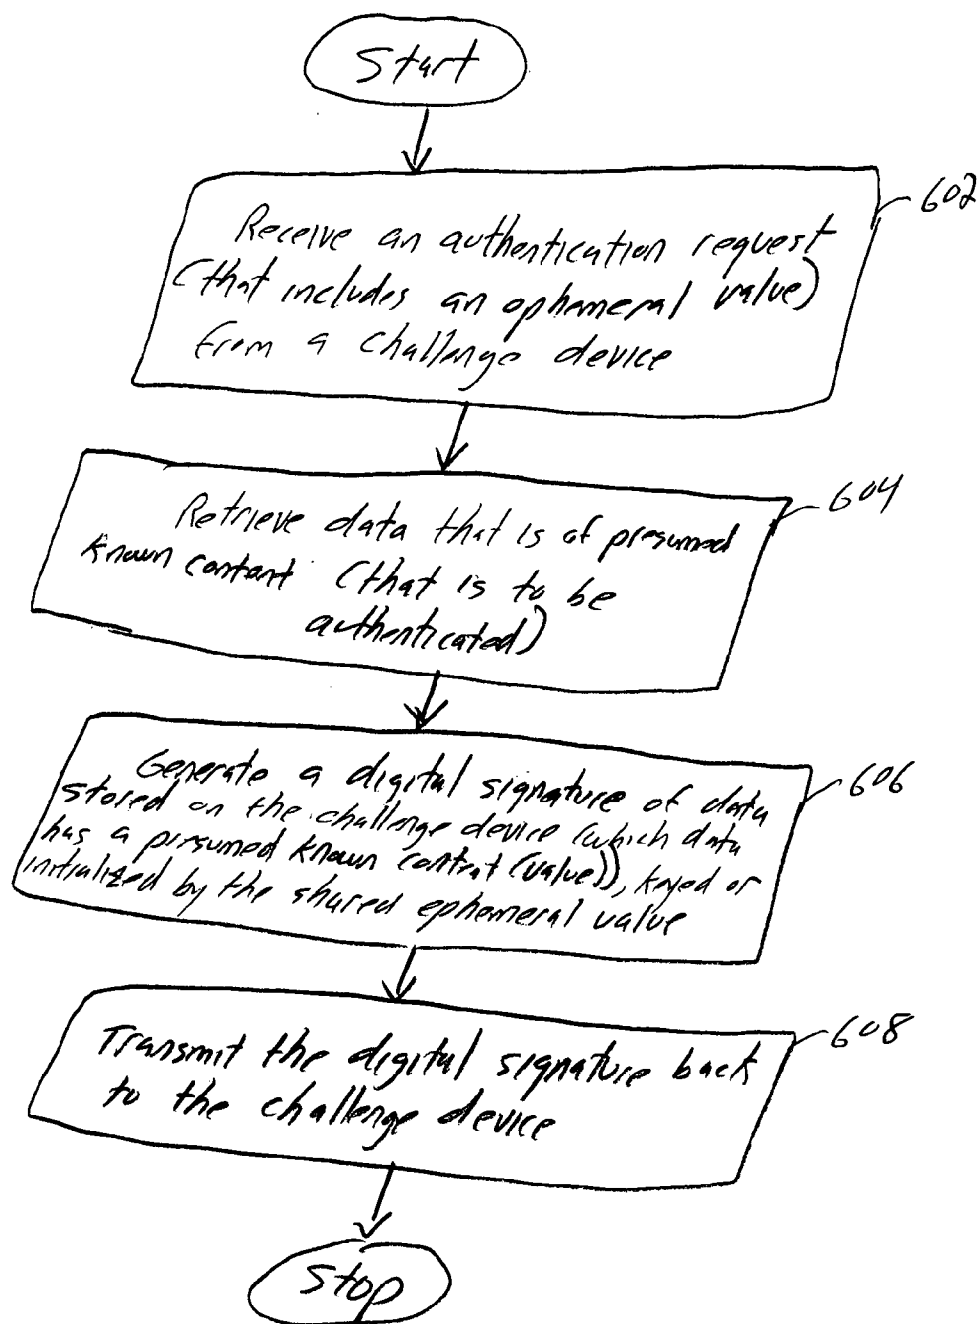 Start
602
Receive an authentication request
(that includes an ephemeral value)
from a challenge device
604
Retrieve data that is of presumed
known content (that is to be
authenticated)
606
Generate a digital signature of data
stored on the challenge device (which data
has a presumed known content (value)), keyed or
initialized by the shared ephemeral value
608
Transmit the digital signature back
to the challenge device
Stop